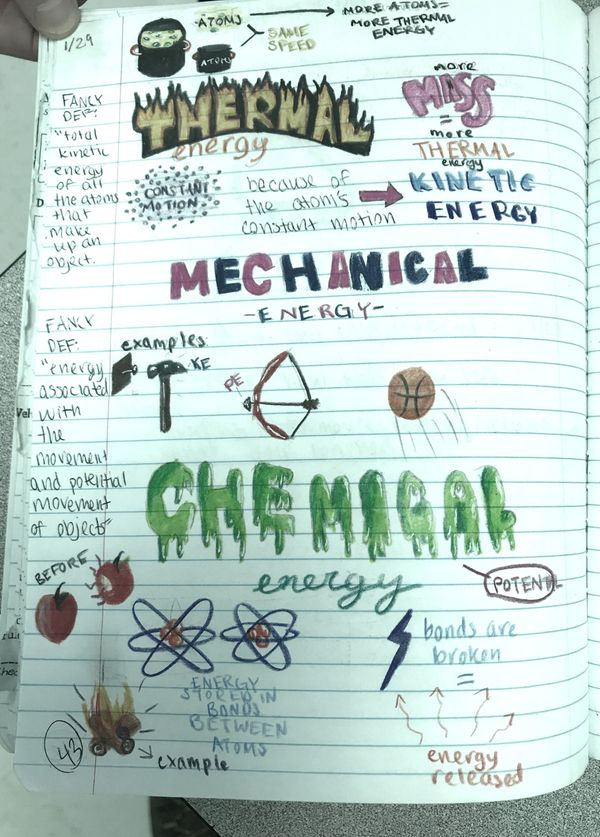 1/29
ATOMS
ATOMS
SAME
SPEED
MORE ATOMS=
MORE THERMAL
ENERGY
FANCY
DEF:
"total
kinetic
energy
of all
the atoms
that
make
up an
object.
THERMAL
energy
more
MASS
=
more
THERMAL
energy
CONSTANT
MOTION
because of
the atom's
constant motion
KINETIC
ENERGY
MECHANICAL
-ENERGY-
FANCY
DEF:
"energy
associated
with
the
movement
and potential
movement
of objects"
examples:
KE
PE
CHEMICAL
energy
POTENTL
BEFORE
ENERGY
STORED IN
BONDS
BETWEEN
ATOMS
bonds are
broken
=
energy
released
example
43